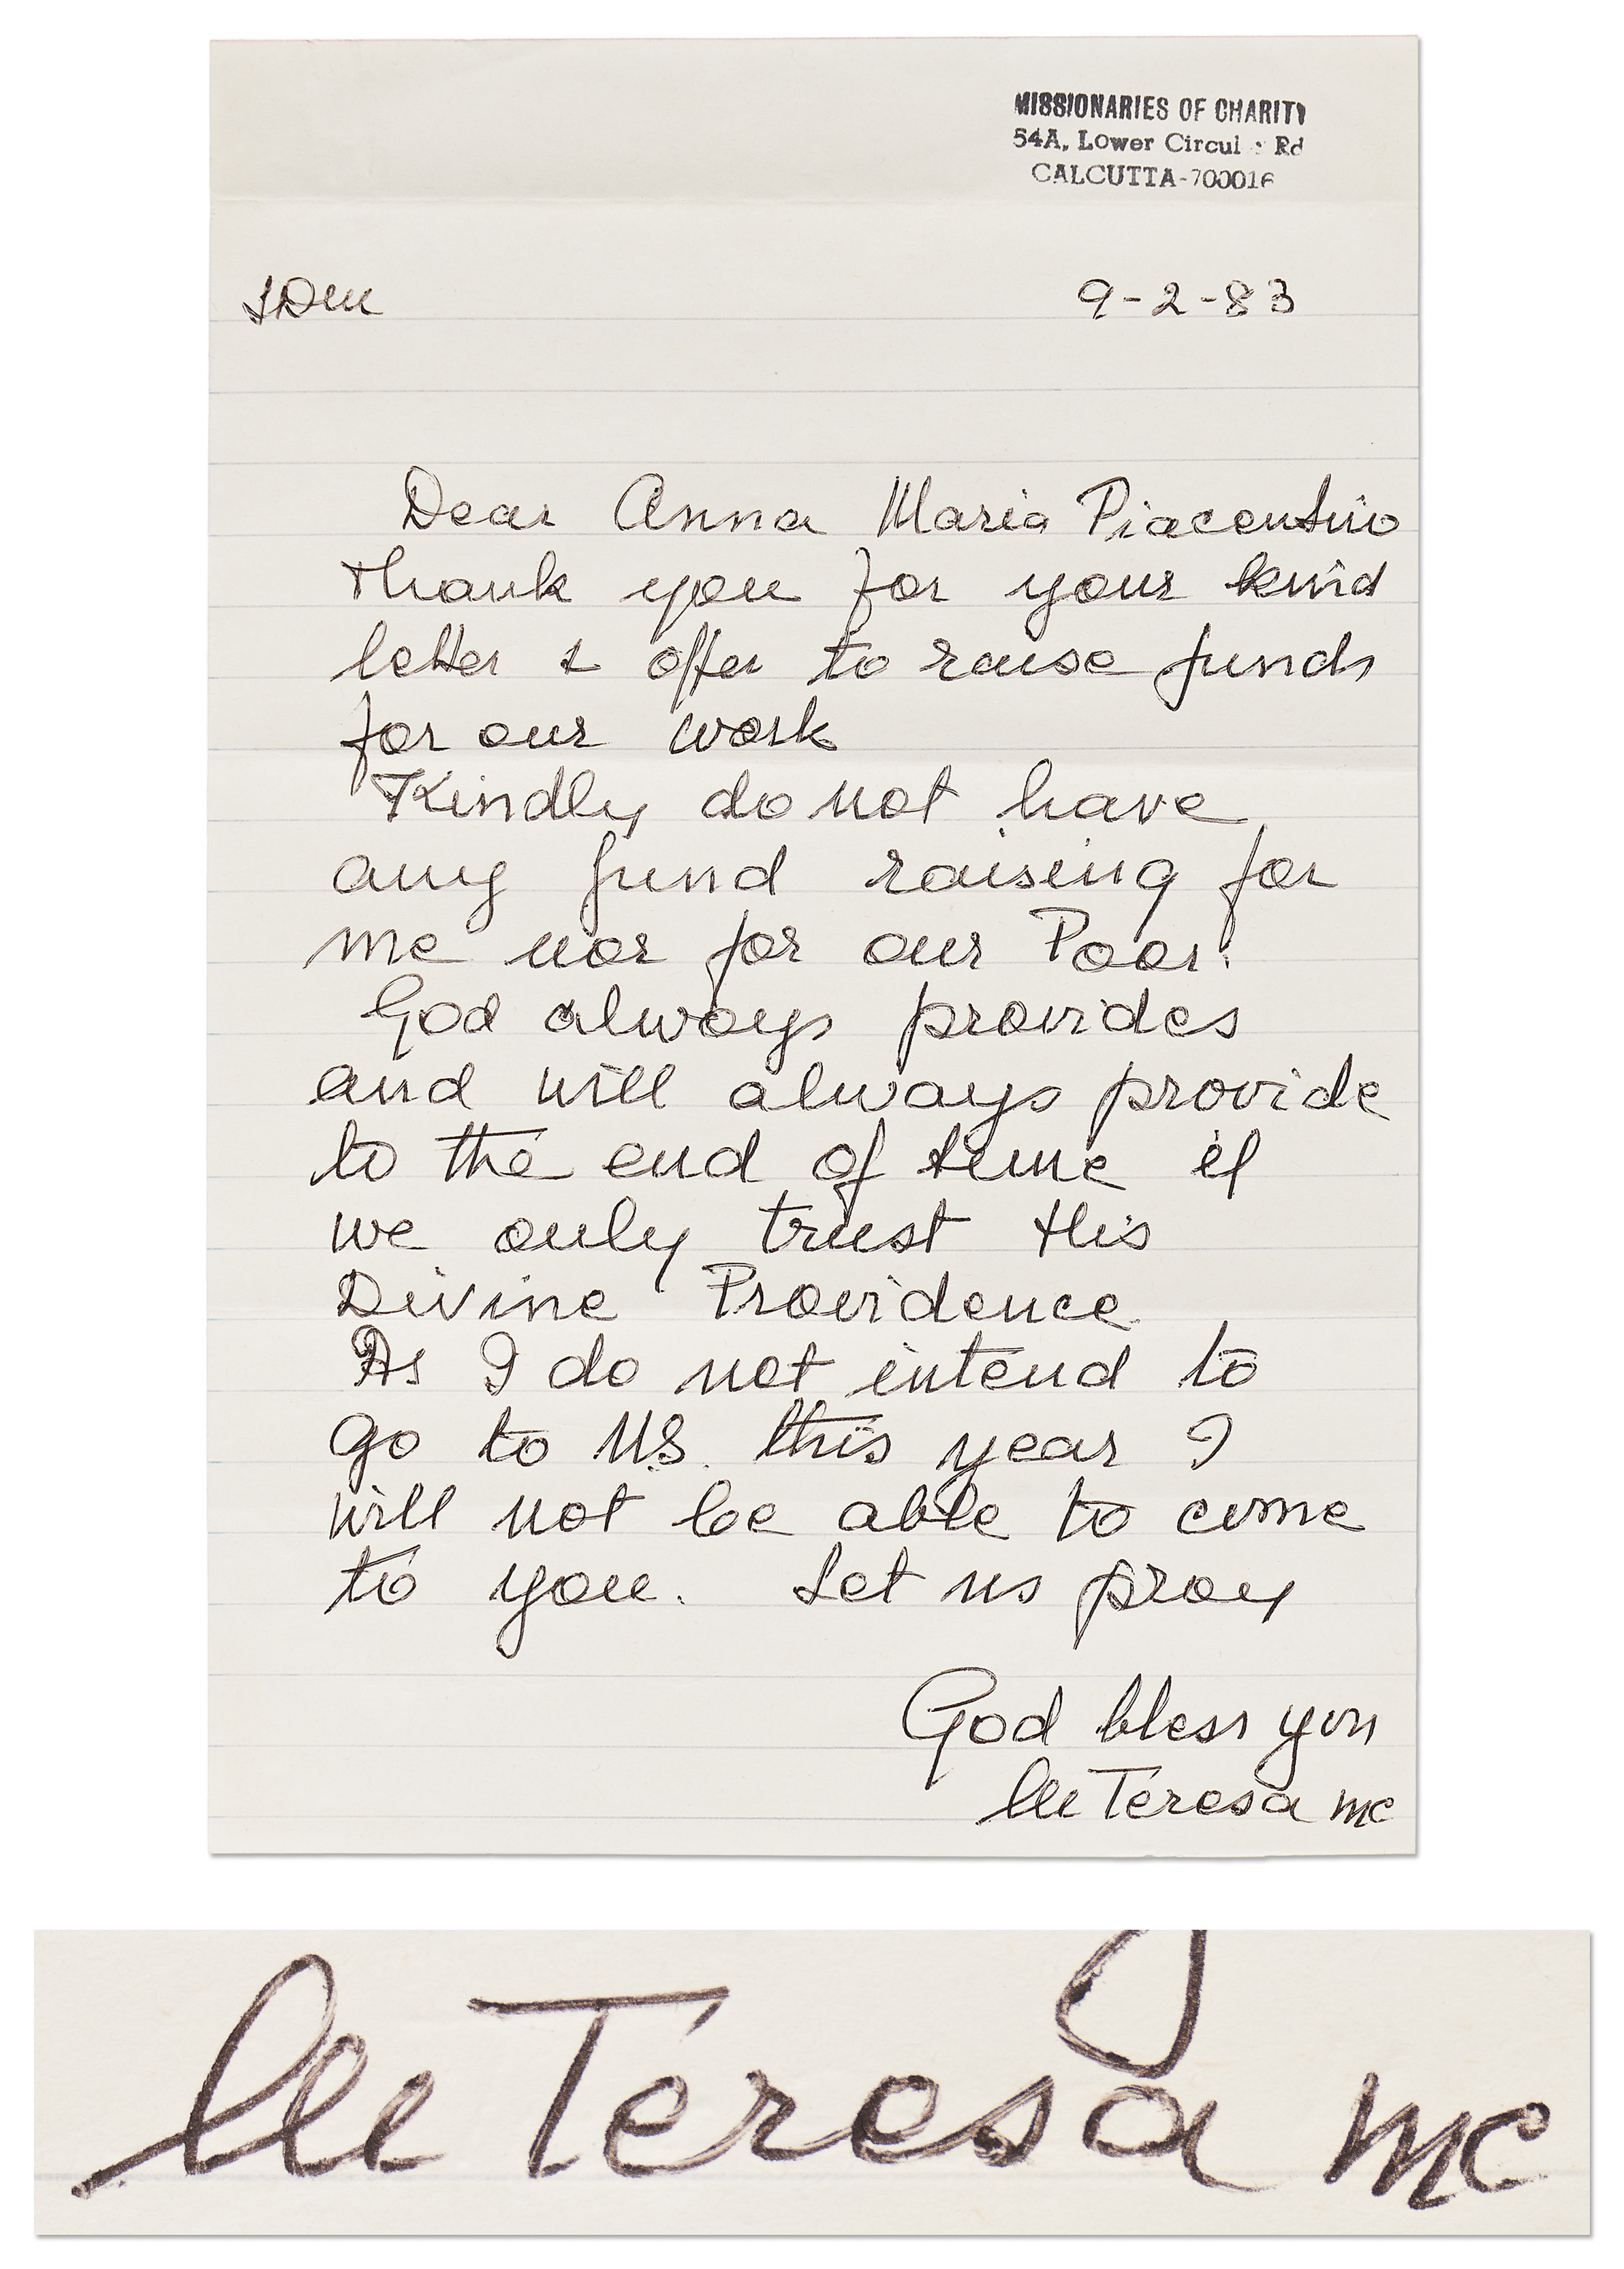 MISSIONARIES OF CHARITY
54A, Lower Circul Rd
CALCUTTA-700016
LDM
9-2-83
Dear Anna Maria Piacentino
thank you for your kind
letter & offer to raise funds
for our work
Kindly do not have
any fund raising for
me nor for our Poor.
God always provides
and will always provide
to the end of time if
we only trust His
Divine Providence
As I do not intend to
go to U.S. this year I
will not be able to come
to you. Let us pray
God bless you
lle Teresa mc
lle Teresa mc